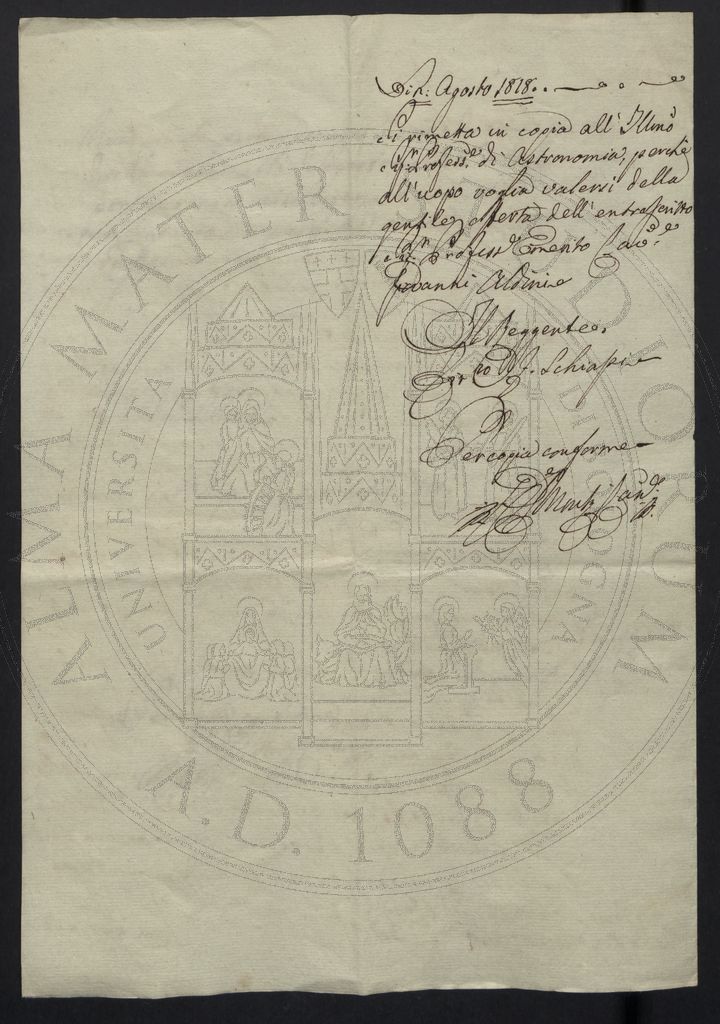 Agosto 1818.
Si rimetta in copia all' Illmo
Sigr Profess.e di Astronomia, perchè
all' uopo voglia valersi della
gentile offerta dell' entrascritto
Sigr Profess.e Emerito Cav.e
Giovanni Aldini
Il Reggente
Schiassi
Per copia conforme
ALMA MATER STUDIORUM
UNIVERSITÀ DI BOLOGNA
A.D. 1088